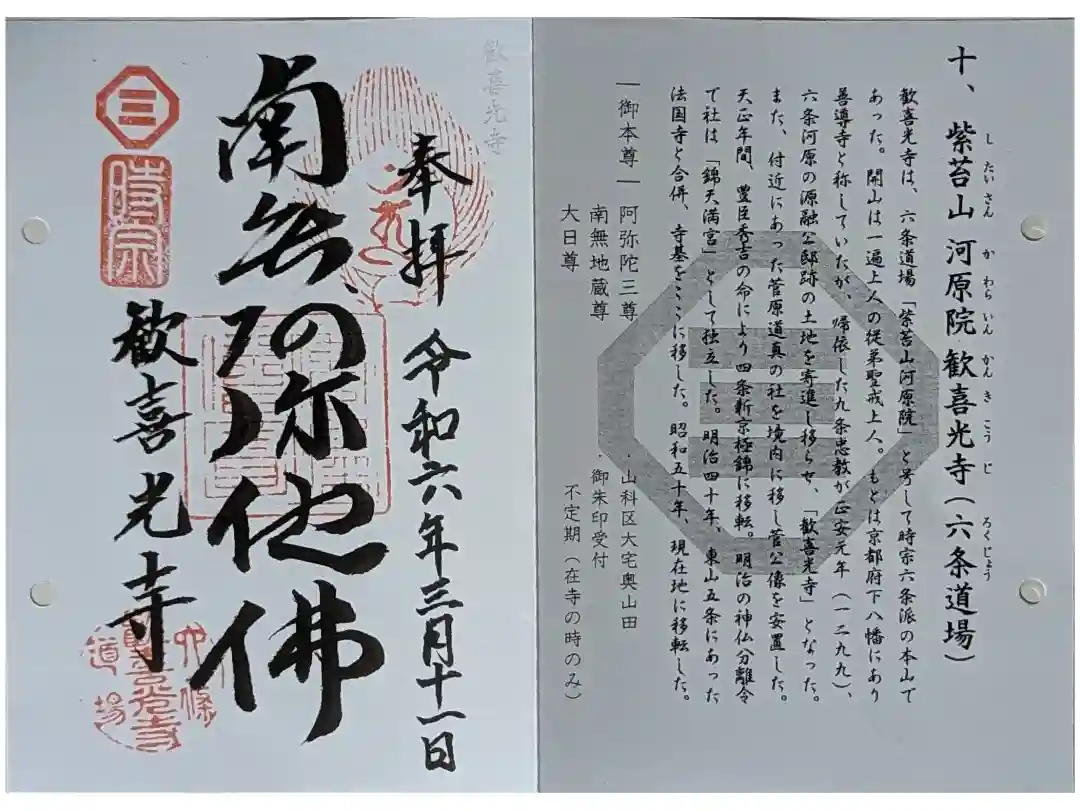 十、紫苔山 河原院 歓喜光寺（六条道場）
したいさん かわらいん かんきこうじ ろくじょう
歓喜光寺は、六条道場「紫苔山河原院」と号して時宗六条派の本山で
あった。開山は一遍上人の従弟聖戒上人。もとは京都府下八幡にあり
善導寺と称していたが、帰依した九条忠教が正安元年（一二九九）、
六条河原の源融公邸跡の土地を寄進し移らせ、「歓喜光寺」となった。
また、付近にあった菅原道真の社を境内に移し菅公像を安置した。
天正年間、豊臣秀吉の命により四条新京極錦に移転。明治の神仏分離令
で社は「錦天満宮」として独立した。明治四十年、東山五条にあった
法国寺と合併、寺基をここに移した。昭和五十年、現在地に移転した。
―御本尊―
阿弥陀三尊
南無地蔵尊
大日尊
・山科区大宅奥山田
・御朱印受付
不定期（在寺の時のみ）
歓喜光寺
奉拝
令和六年三月十一日
南無阿弥陀佛
三
時宗
歓喜光寺
六條
歓喜光寺
道場